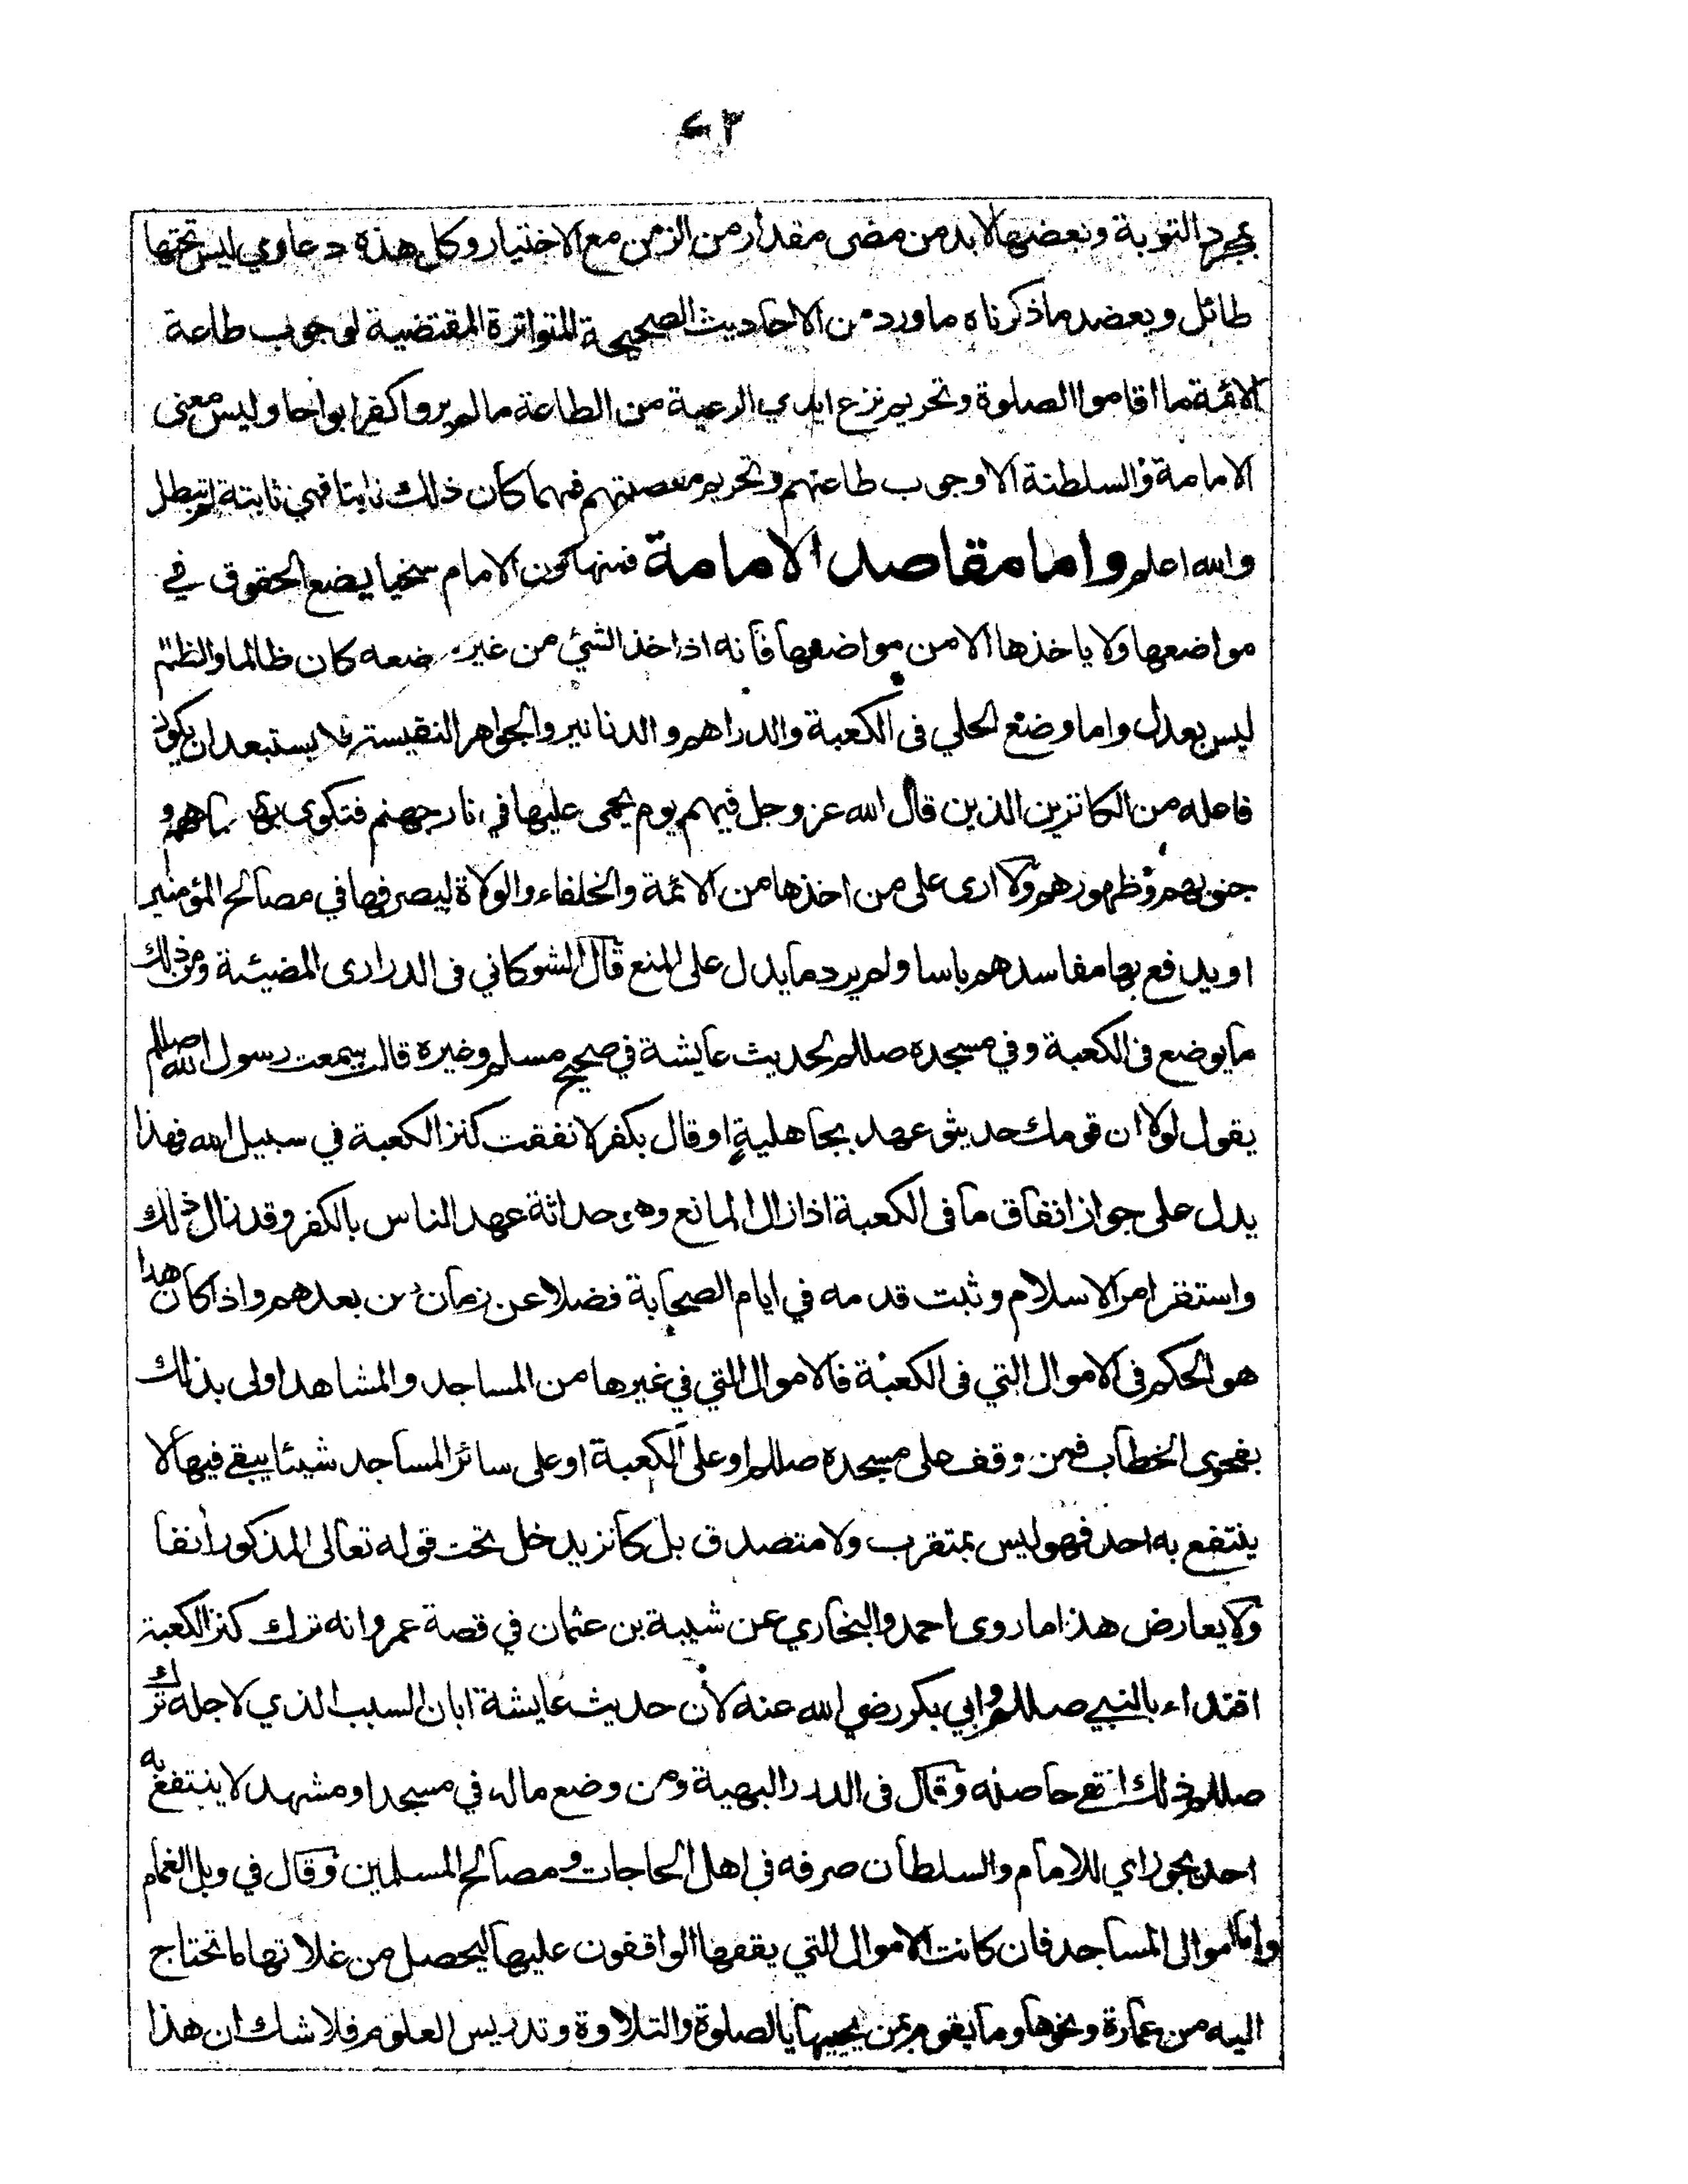 ٤٣
بمجرد التوبة وبعضها لابد من مضى مقدار من الزمن مع الاختيار وكل هذه دعاوي ليس تحتها
طائل ويعضد ما ذكرناه ما ورد من الاحاديث الصحيحة المتواترة المقتضية لوجوب طاعة
الائمة ما اقاموا الصلوة وتحريم نزع ايدي الرعية من الطاعة ما لم يروا كفرا بواحا وليس معنى
الامامة والسلطنة الا وجوب طاعتهم وتحريم معصيتهم فهما كان ذلك ثابتا فهي ثابتة لم تبطل
والله اعلم واما مقاصد الامامة فمنها كون الامام سخيا يضع الحقوق في
مواضعها ولا ياخذها الا من مواضعها فانه اذا اخذ الشئ من غير ضعه كان ظالما والظلم
ليس بعدل واما وضع الحلي فى الكعبة والدراهم والدنانير والجواهر النفيسة فلا يستبعد ان يكون
فاعله من الكانزين الذين قال الله عز وجل فيهم يوم يحمى عليها في نار جهنم فتكوى بها جباههم و
جنوبهم وظهورهم ولا ارى على من اخذها من الائمة والخلفاء والولاة ليصرفها في مصالح المؤمنين
او يدافع بها مفاسدهم باسا ولم يرد ما يدل على المنع قال الشوكاني فى الدرارى المضيئة ومن ذلك
ما يوضع فى الكعبة وفي مسجده صللم لحديث عايشة في صحيح مسلم وغيره قالت سمعت رسول الله صللم
يقول لولا ان قومك حديثو عهد بجاهلية او قال بكفر لانفقت كنز الكعبة في سبيل الله فهذا
يدل على جواز انفاق ما فى الكعبة اذا زال المانع وهو حداثة عهد الناس بالكفر وقد زال ذلك
واستقر امر الاسلام وثبت قدمه في ايام الصحابة فضلا عن زمان من بعدهم واذا كان هذا
هو الحكم فى الاموال التي فى الكعبة فالاموال التي في غيرها من المساجد والمشاهد اولى بذلك
بفحوى الخطاب فمن وقف على مسجده صللم او على الكعبة او على سائر المساجد شيئا يبقى فيها لا
ينتفع به احد فهو ليس بمتقرب ولا متصدق بل كانز يدخل تحت قوله تعالى المذكور أنفا
ولا يعارض هذا ما روى احمد والبخاري عن شيبة بن عثمان في قصة عمر وانه ترك كنز الكعبة
اقتداء بالنبي صللم وابي بكر رضي الله عنه لأن حديث عايشة ابان السبب الذي لاجله ترك
صللم ذلك انتهى حاصله وقال فى الدرر البهية ومن وضع ماله في مسجد او مشهد لا ينتفع به
احد يجوز اي للامام والسلطان صرفه فى اهل الحاجات و مصالح المسلمين وقال في وبل الغمام
واما اموال المساجد فان كانت الاموال التي يقفها الواقفون عليها ليحصل من غلاتها ما تحتاج
اليه من عمارة ونحوها وما يقوم بمن يحييها بالصلوة والتلاوة وتدريس العلوم فلا شك ان هذا